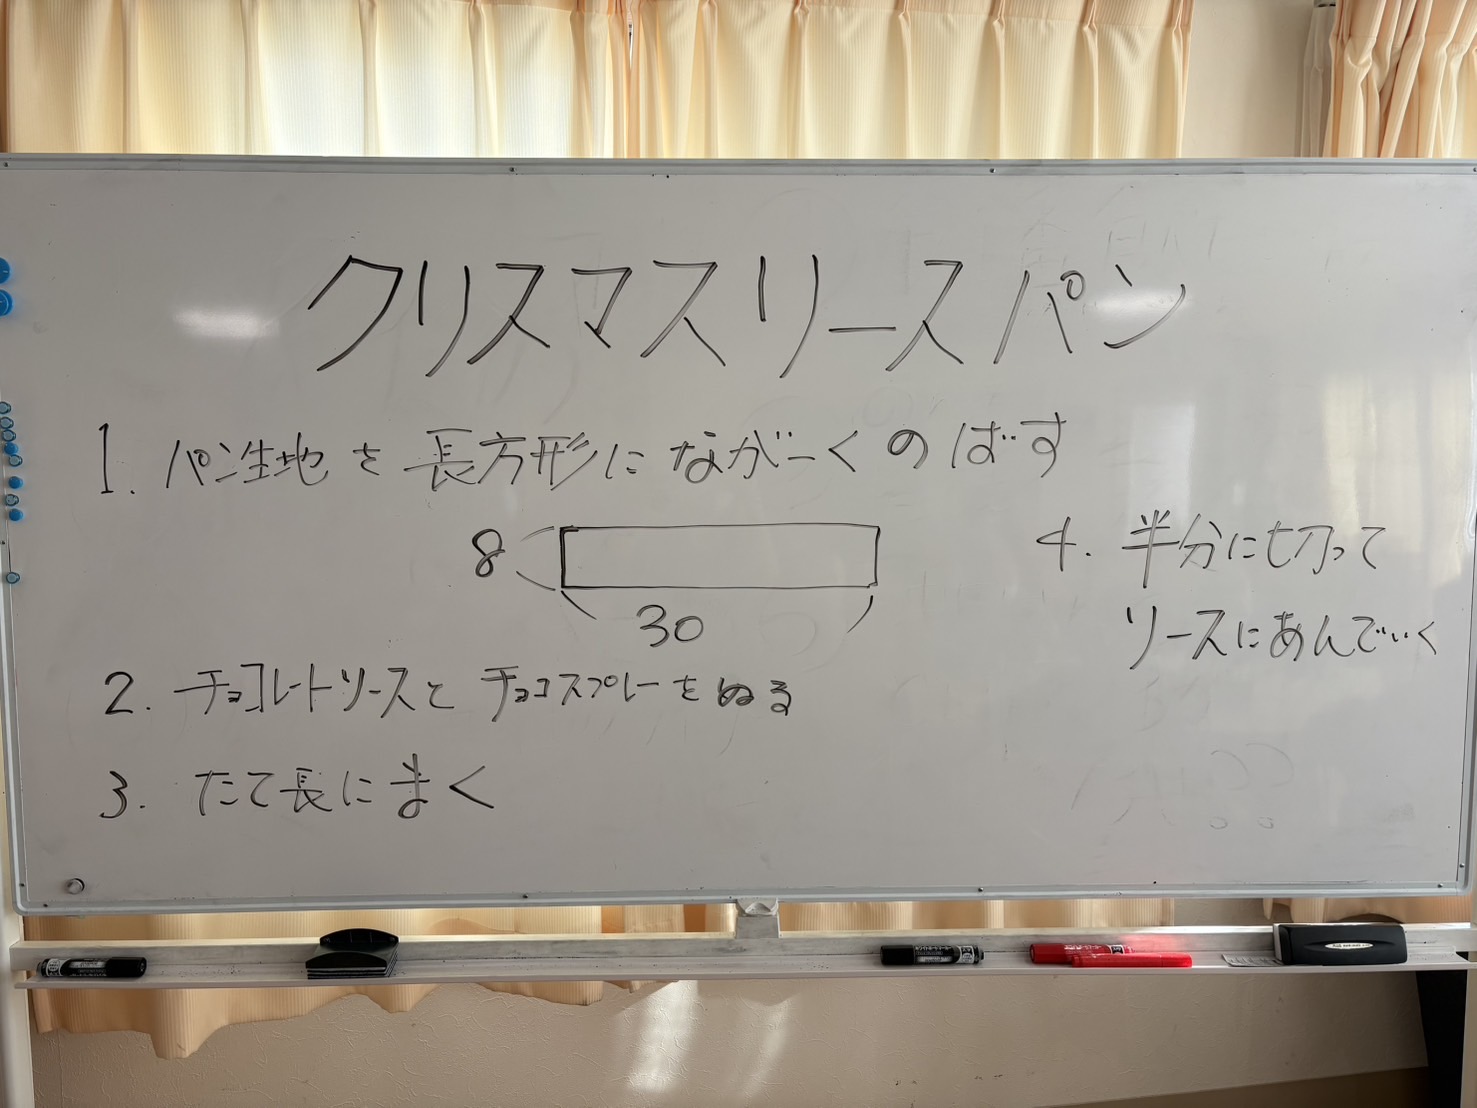 クリスマスリースパン
1. パン生地を長方形にながーくのばす
8
30
2. チョコレートソースとチョコスプレーをぬる
3. たて長にまく
4. 半分に切って
リースにあんでいく